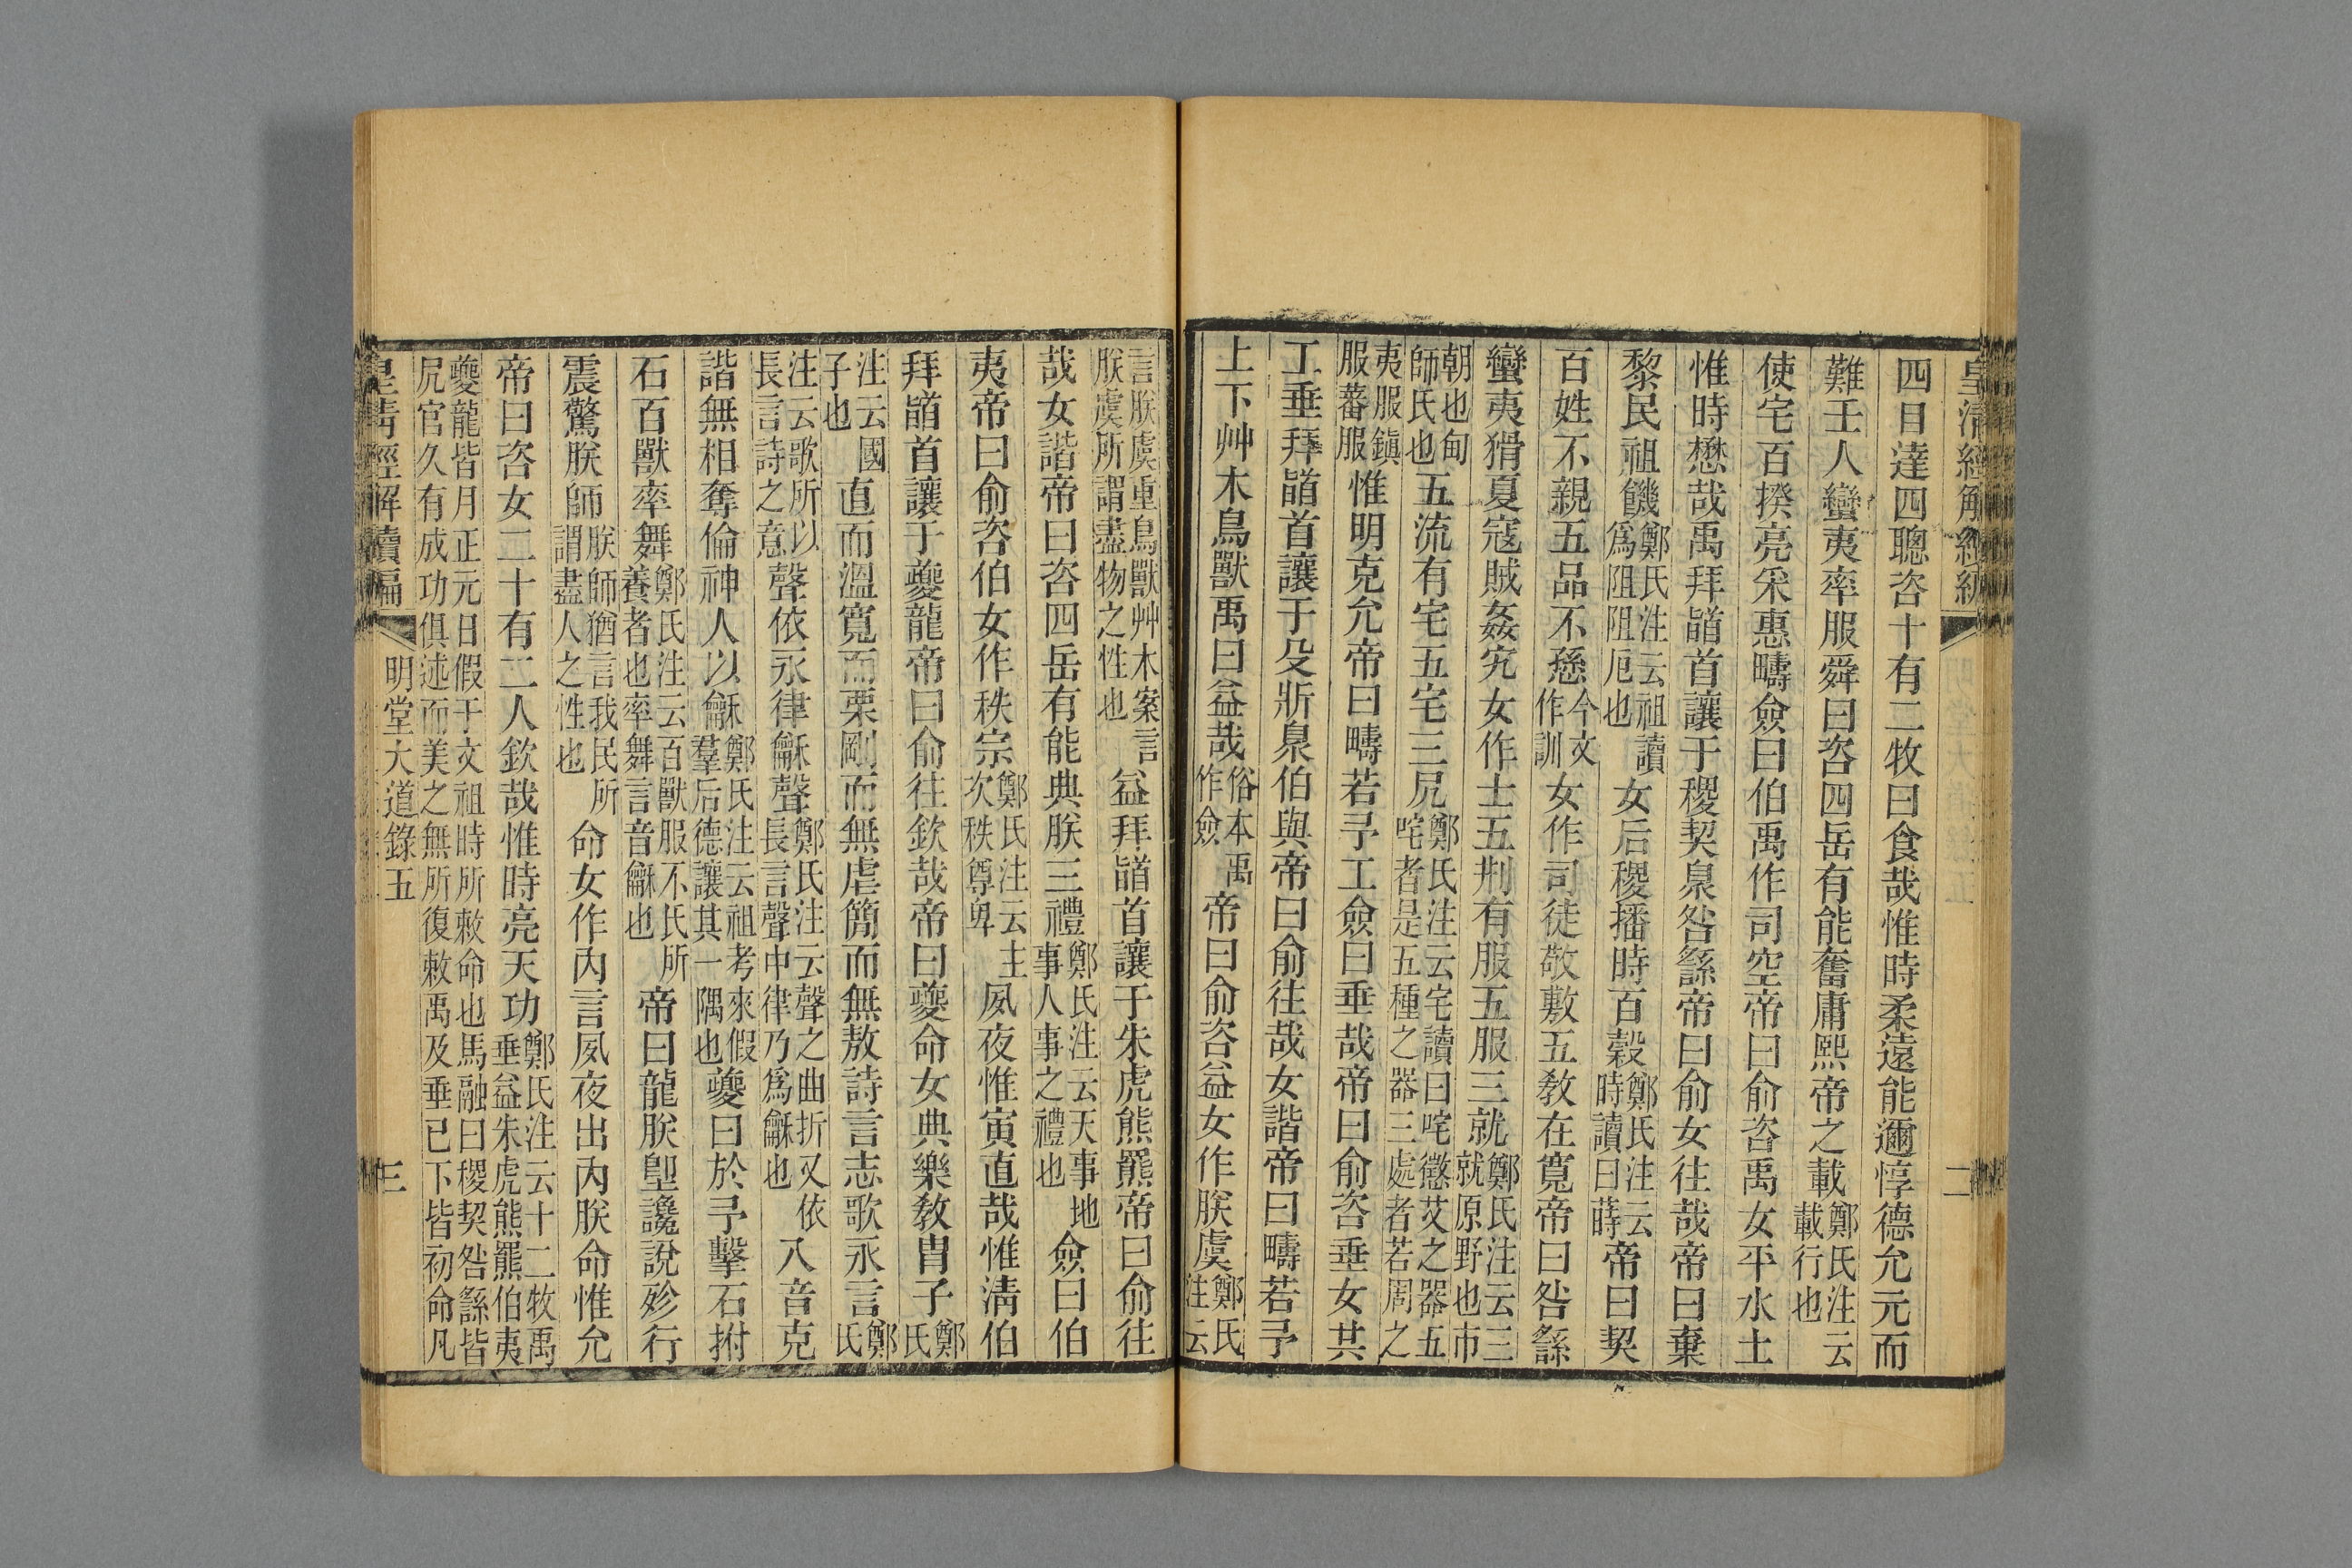 皇清經解續編　二
四目達四聰咨十有二牧曰食哉惟時柔遠能邇惇德允元而
難壬人蠻夷率服舜曰咨四岳有能奮庸熙帝之載鄭氏注云載行也
使宅百揆亮采惠疇僉曰伯禹作司空帝曰俞咨禹女平水土
惟時懋哉禹拜䭫首讓于稷契臮咎繇帝曰俞女往哉帝曰棄
黎民祖飢鄭氏注云祖讀爲阻阻厄也女后稷播時百穀鄭氏注云時讀曰蒔帝曰契
百姓不親五品不愻今文作訓女作司徒敬敷五敎在寬帝曰咎繇
蠻夷猾夏寇賊姦宄女作士五刑有服五服三就鄭氏注云三就原野也市
朝也甸師氏也五流有宅五宅三凥鄭氏注云宅讀曰咤懲艾之器五咤者是五種之器三處者若周之
夷服鎭服蕃服惟明克允帝曰疇若予工僉曰垂哉帝曰俞咨垂女共
工垂拜䭫首讓于殳斨臮伯與帝曰俞往哉女諧帝曰疇若予
上下艸木鳥獸禹曰益哉俗本禹作僉帝曰俞咨益女作朕虞鄭氏注云
言朕虞重鳥獸艸木案言朕虞所謂盡物之性也益拜䭫首讓于朱虎熊羆帝曰俞往
哉女諧帝曰咨四岳有能典朕三禮鄭氏注云天事地事人事之禮也僉曰伯
夷帝曰俞咨伯女作秩宗鄭氏注云主次秩尊卑夙夜惟寅直哉惟淸伯
拜䭫首讓于夔龍帝曰俞往欽哉帝曰夔命女典樂敎胄子鄭氏
注云國子也直而溫寬而栗剛而無虐簡而無敖詩言志歌永言鄭氏
注云歌所以長言詩之意聲依永律龢聲鄭氏注云聲之曲折又依長言聲中律乃爲龢也八音克
諧無相奪倫神人以龢鄭氏注云祖考來假羣后德讓其一隅也夔曰於予擊石拊
石百獸率舞鄭氏注云百獸服不氏所養者也率舞言音龢也帝曰龍朕堲讒說殄行
震驚朕師朕師猶言我民所謂盡人之性也命女作內言夙夜出內朕命惟允
帝曰咨女二十有二人欽哉惟時亮天功鄭氏注云十二牧禹垂益朱虎熊羆伯夷
夔龍皆月正元日假于文祖時所敕命也馬融曰稷契咎繇皆凥官久有成功俱述而美之無所復敕禹及垂已下皆初命凡
皇淸經解續編　明堂大道錄五　三